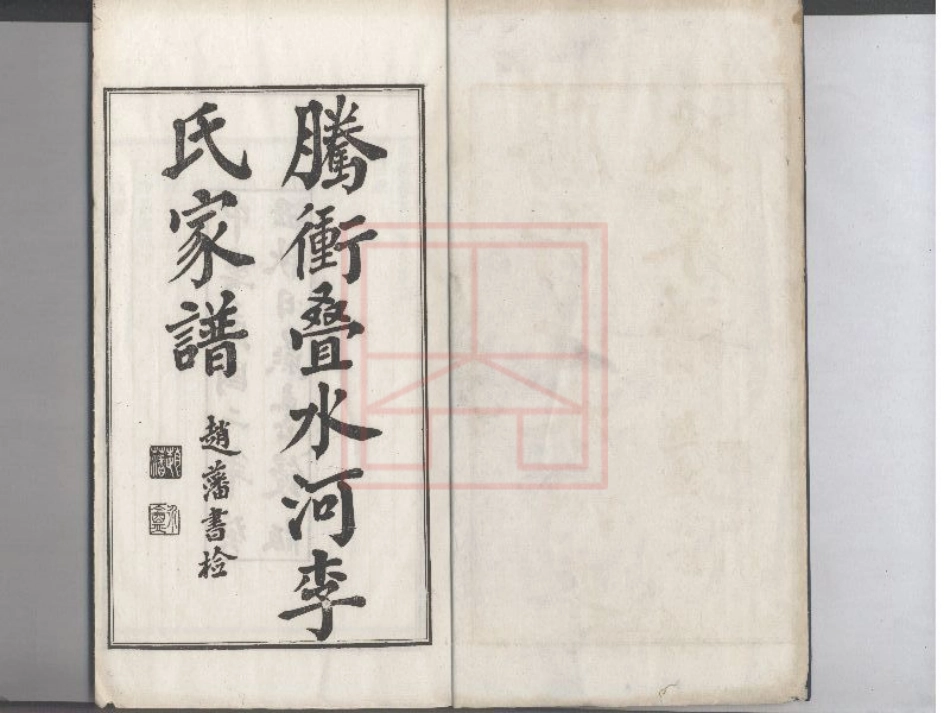 騰衝疊水河李
氏家譜
趙藩書檢
趙藩